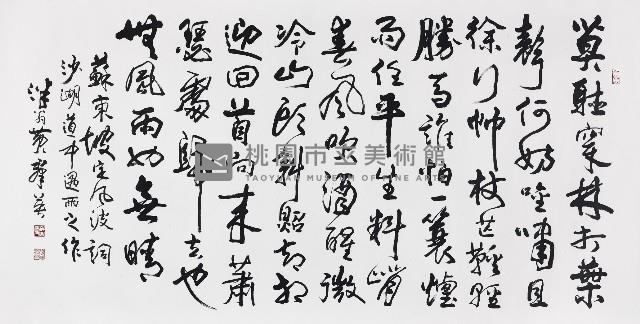 莫聽穿林打葉
聲何妨吟嘯且
徐行竹杖芒鞋輕
勝馬誰怕一蓑煙
雨任平生料峭
春風吹酒醒微
冷山頭斜照却相
迎回首向來蕭
瑟處歸去也
無風雨也無晴
蘇東坡定風波詞
沙湖道中遇雨之作
黃
桃園市立美術館
TAOYUAN MUSEUM OF FINE ARTS